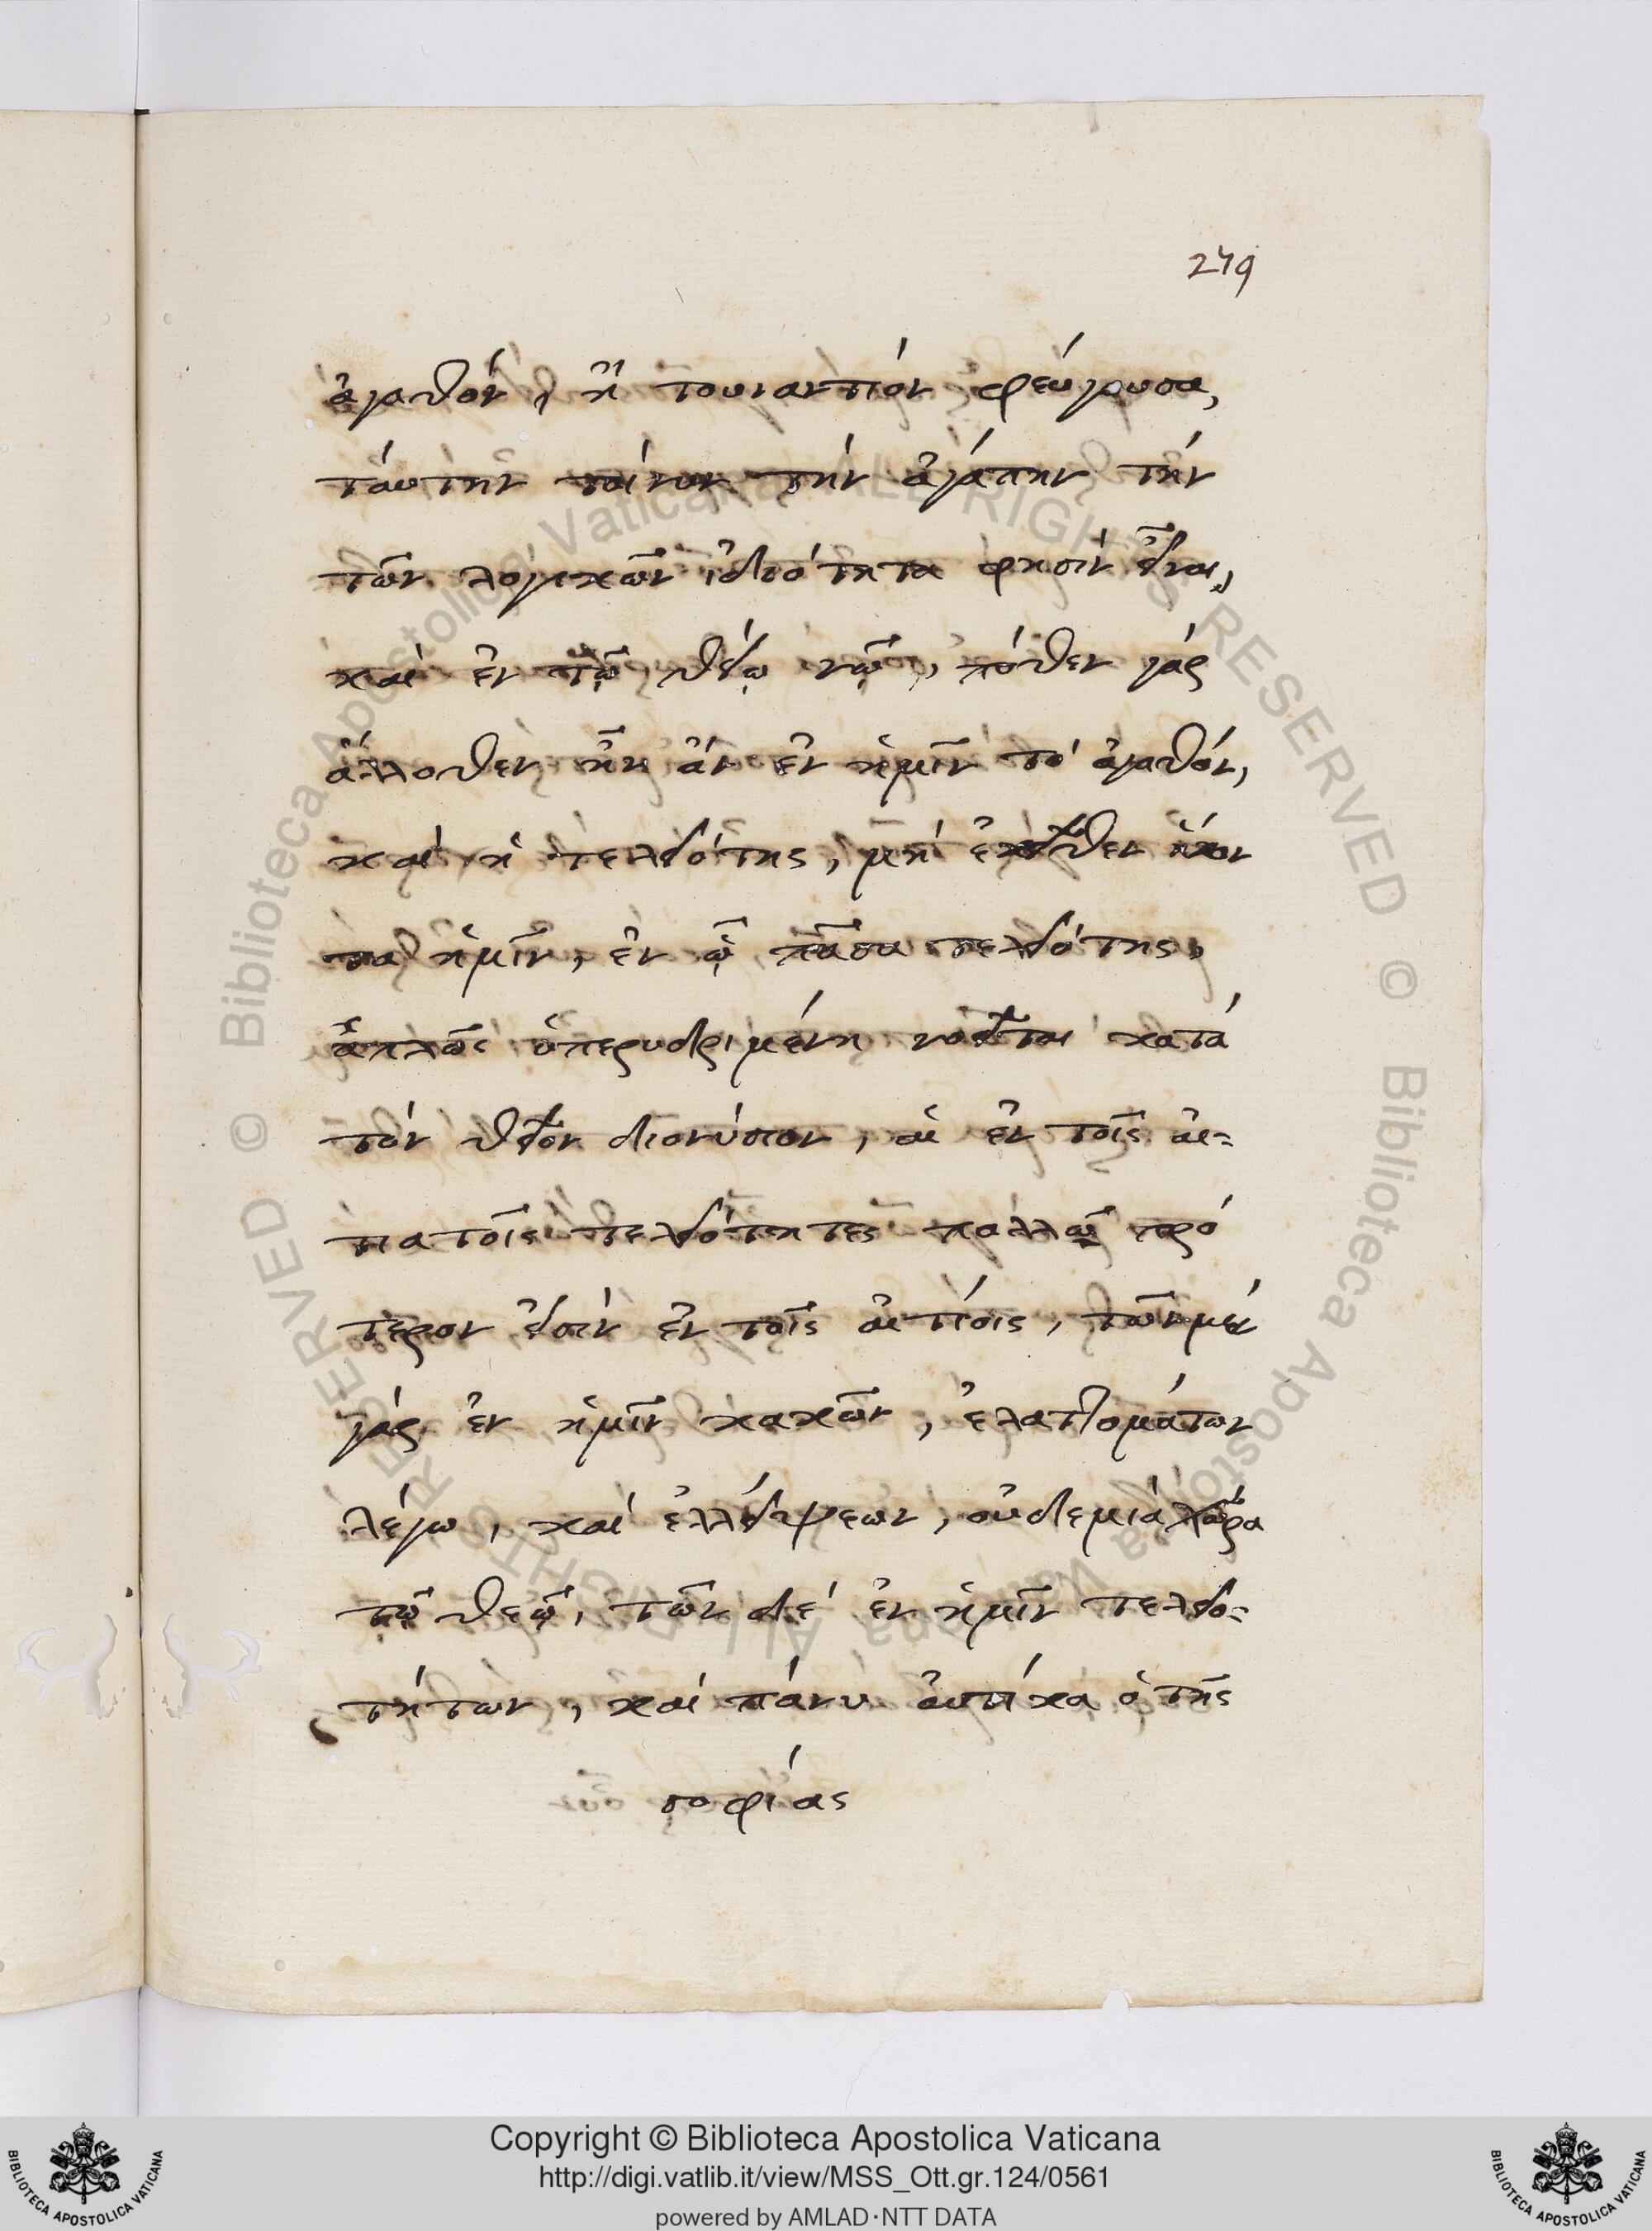 279
ἀγαθόν, ἢ τουναντίον φεύγουσα,
ταύτην τοίνυν τὴν ἀγάπην τὴν
τῶν λογικῶν ἰδιότητα φησὶν εἶναι,
καὶ ἐν τῷ θείῳ νῷ, πόθεν γὰρ
ἄλλοθεν ἦν ἂν ἐν ἡμῖν τὸ ἀγαθόν,
καὶ ἡ τελειότης, μὴ ἐκεῖθεν ἧκον
τα ἡμῖν, ἐν ᾧ πᾶσα τελειότης,
ἁπλῶς ὑπεριδρυμένη νοεῖται κατὰ
τὸν θεῖον διονύσιον, αἱ ἐν τοῖς αἰ-
τιατοῖς τελειότητες πολλῷ πρό
τερον εἰσὶν ἐν τοῖς αἰτίοις, τῶν μὲν
γὰρ ἐν ἡμῖν κακῶν, ἐλαττομάτων
λέγω, καὶ ἐλλείψεων, οὐδεμία χώρα
τῷ θεῷ, τῶν δὲ ἐν ἡμῖν τελειο-
τήτων, καὶ πάνυ αὐτίκα ὁ τῆς
σοφίας
© Biblioteca Apostolica Vaticana ALL RIGHTS RESERVED © Biblioteca Apostolica Vaticana ALL RIGHTS RESERVED
Copyright © Biblioteca Apostolica Vaticana
http://digi.vatlib.it/view/MSS_Ott.gr.124/0561
powered by AMLAD·NTT DATA
BIBLIOTECA APOSTOLICA VATICANA
BIBLIOTECA APOSTOLICA VATICANA